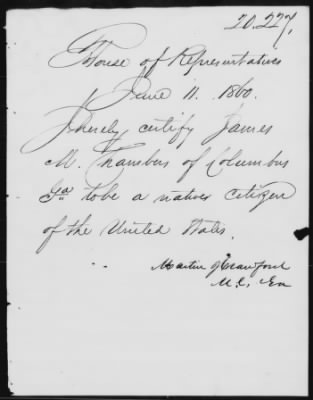 20.227,
House of Representatives
June 11. 1860.
I hereby certify James
M. Chambers of Columbus
Ga to be a native citizen
of the United States.
Martin J Crawford
M.C. Ga